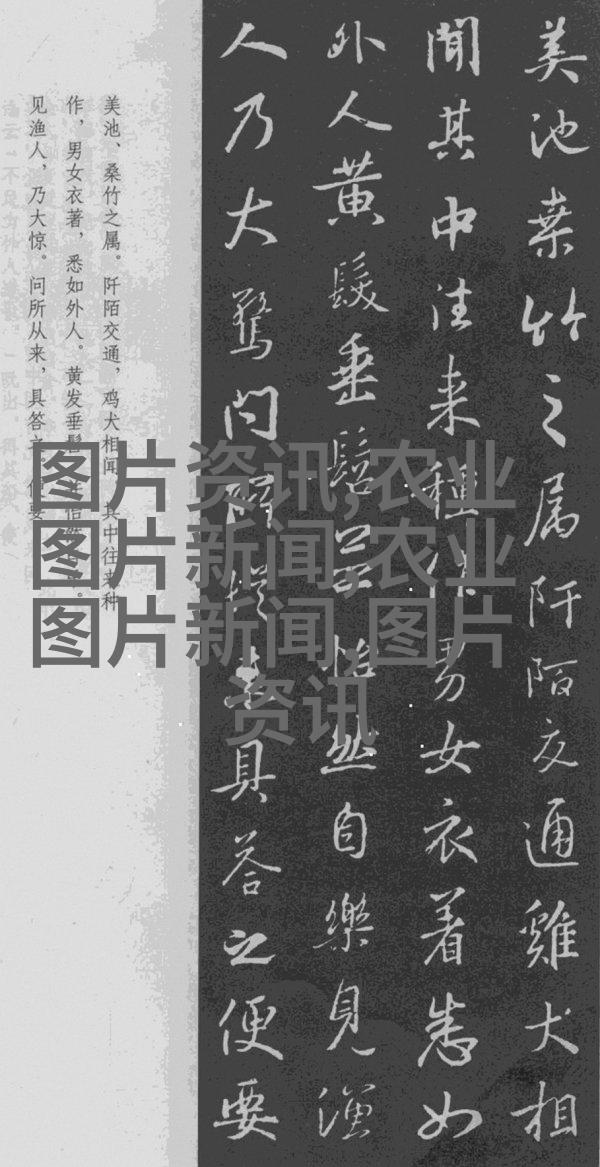 美池桒竹之属阡陌交通雞犬相
聞其中往来種作男女衣着悉如
外人黄髮垂髫並怡然自樂見漁
人乃大驚問所從来具答之便要
美池、桑竹之属。阡陌交通，鸡犬相闻。其中往来种
作，男女衣著，悉如外人。黄发垂髫，并怡然自乐。
见渔人，乃大惊。问所从来，具答之。便要
图片资讯,农业
图片新闻,农业
图片新闻,图片
资讯